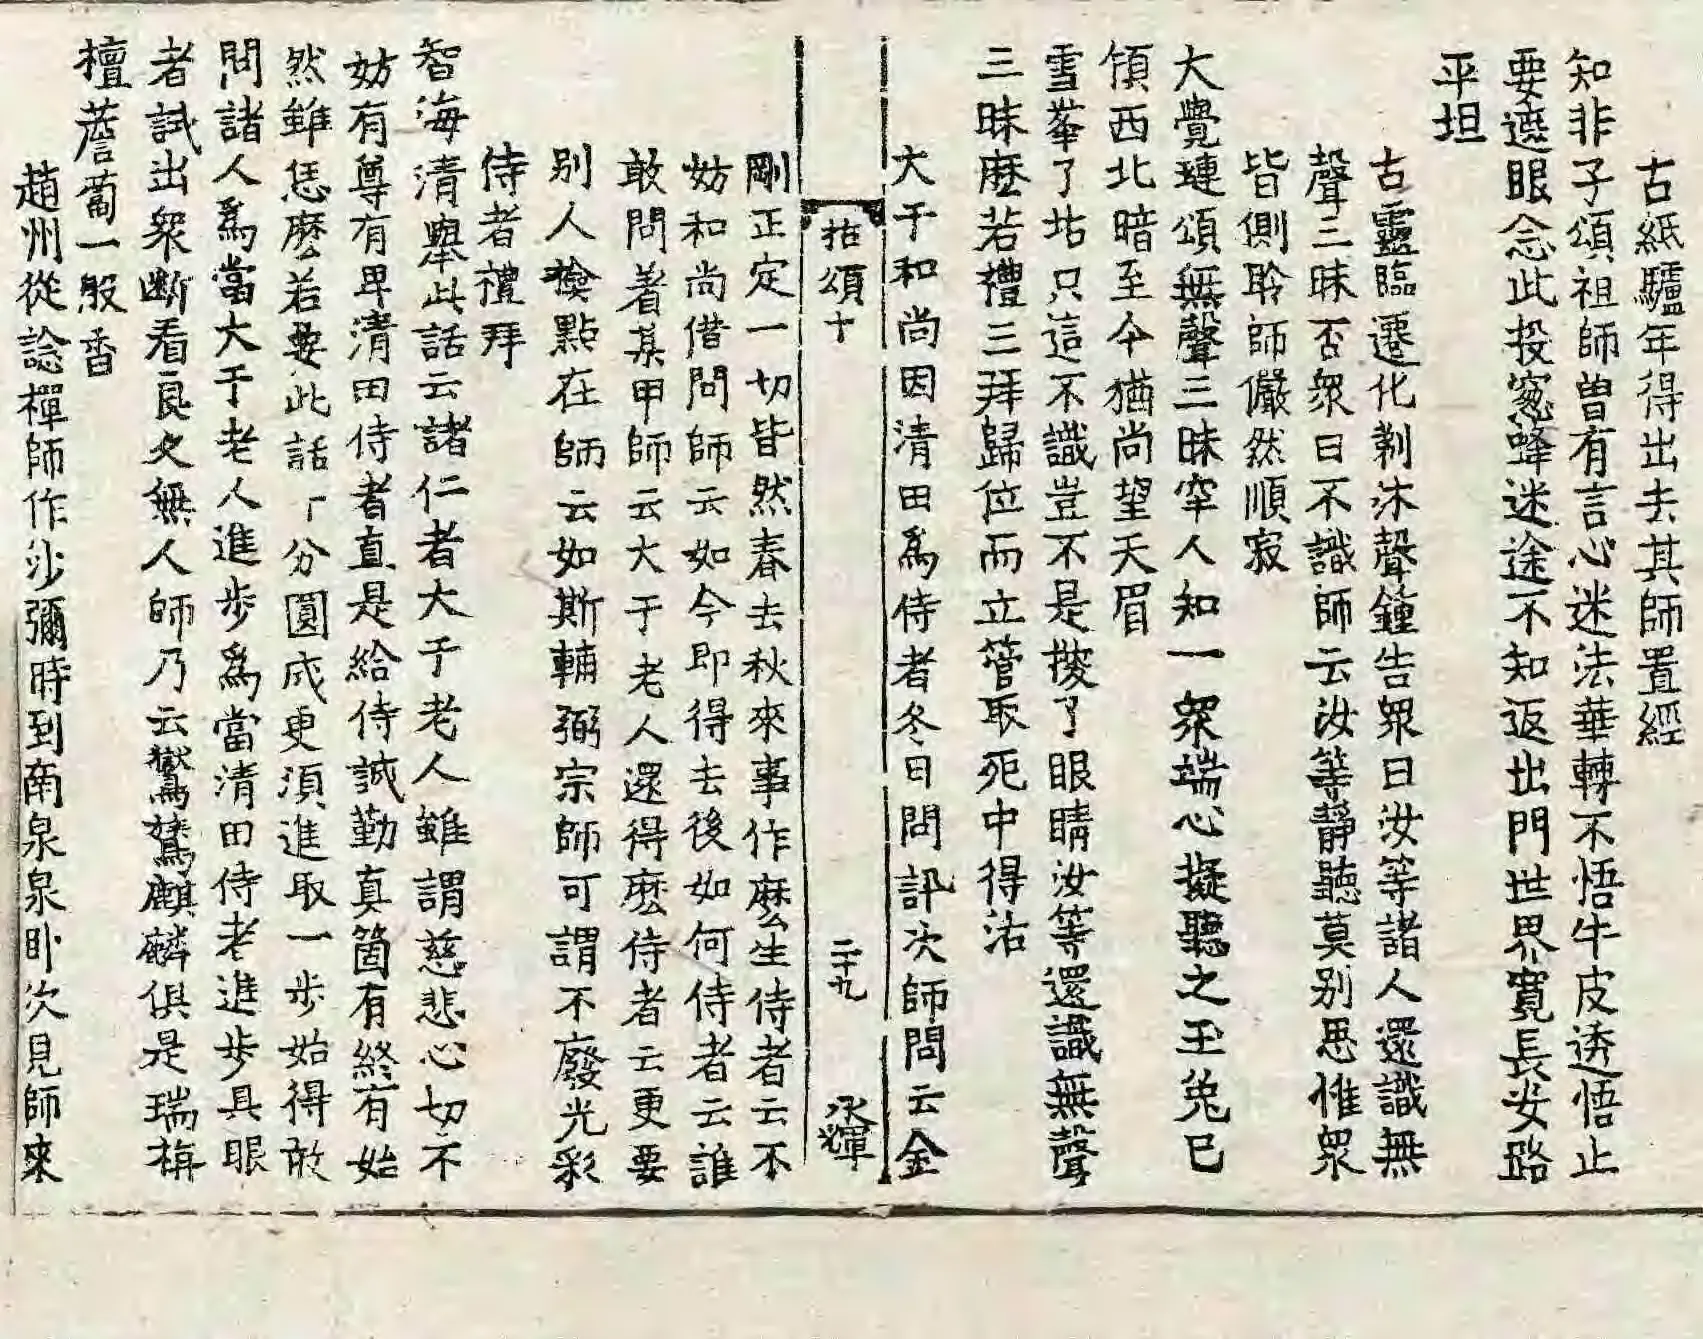 古紙驢年得出去其師置經
知非子頌祖師曾有言心迷法華轉不悟牛皮透悟止
要遮眼念此投窓蜂迷途不知返出門世界寬長安路
平坦
古靈臨遷化剃沐聲鐘告眾曰汝等諸人還識無
聲三昧否眾曰不識師云汝等靜聽莫别思惟眾
皆側聆師儼然順寂
大覺璉頌無聲三昧罕人知一眾端心擬聽之玉兔已
領西北暗至今猶尚望天眉
雪峯了拈只這不識豈不是換了眼睛汝等還識無聲
三昧麽若禮三拜歸位而立管取死中得活
大于和尚因清田爲侍者冬日問訊次師問云金
拈頌十
二十九
永輝
剛正定一切皆然春去秋來事作麽生侍者云不
妨和尚借問師云如今即得去後如何侍者云誰
敢問着某甲師云大于老人還得麽侍者云更要
别人檢點在師云如斯輔弼宗師可謂不廢光彩
侍者禮拜
智海清舉此話云諸仁者大于老人雖謂慈悲心切不
妨有尊有卑清田侍者直是給侍誠勤真箇有終有始
然雖恁麽若要此話十分圓成更須進取一步始得敢
問諸人爲當大于老人進步爲當清田侍者進步具眼
者試出眾断看良久無人師乃云鸑鷟麒麟俱是瑞栴
檀薝蔔一般香
趙州從諗禪師作沙彌時到南泉泉臥次見師來